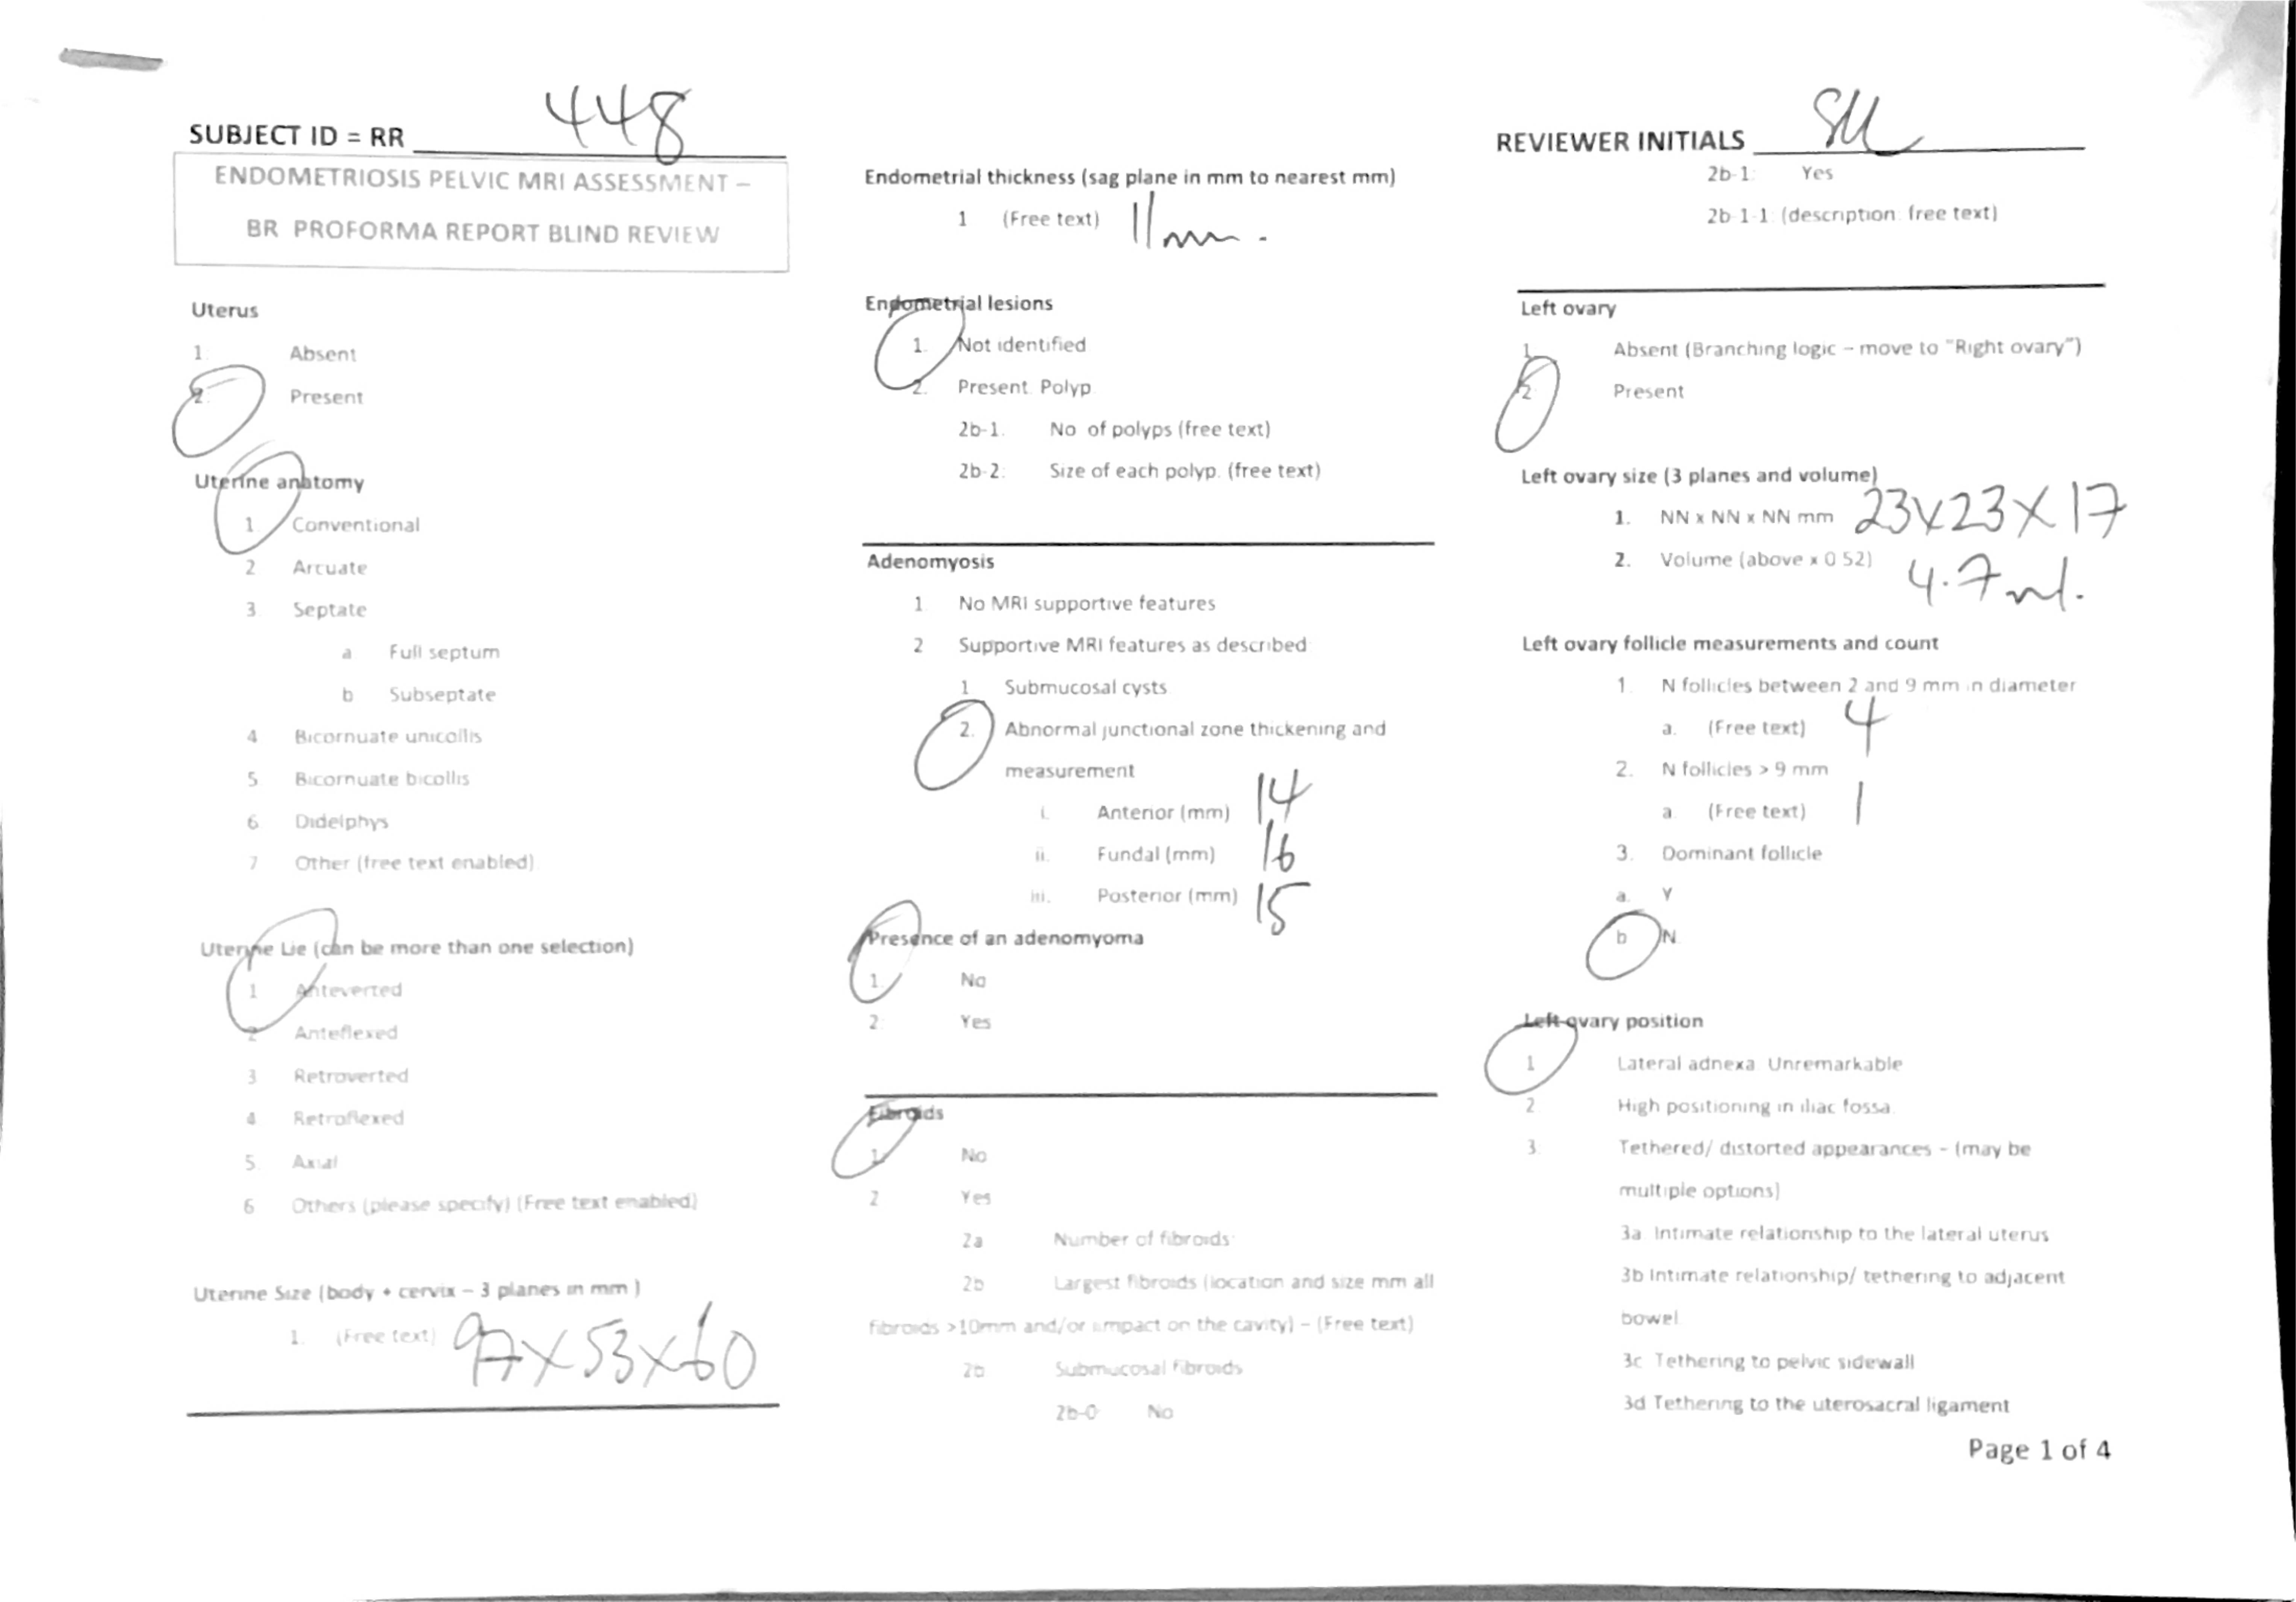 SUBJECT ID = RR 448
ENDOMETRIOSIS PELVIC MRI ASSESSMENT –
BR PROFORMA REPORT BLIND REVIEW
Uterus
1. Absent
2. Present
Uterine anatomy
1. Conventional
2 Arcuate
3 Septate
a Full septum
b Subseptate
4 Bicornuate unicollis
5 Bicornuate bicollis
6 Didelphys
7 Other (free text enabled)
Uterine Lie (can be more than one selection)
1 Anteverted
2 Anteflexed
3 Retroverted
4 Retroflexed
5. Axial
6 Others (please specify) (Free text enabled)
Uterine Size (body + cervix – 3 planes in mm )
1. (Free text) 97 X 53 X 60
Endometrial thickness (sag plane in mm to nearest mm)
1 (Free text) 11mm.
Endometrial lesions
1. Not identified
2. Present. Polyp
2b-1. No of polyps (free text)
2b-2: Size of each polyp. (free text)
Adenomyosis
1. No MRI supportive features
2 Supportive MRI features as described
1 Submucosal cysts
2. Abnormal junctional zone thickening and
measurement
i. Anterior (mm) 14
ii. Fundal (mm) 16
iii. Posterior (mm) 15
Presence of an adenomyoma
1 No
2: Yes
Fibroids
1. No
2 Yes
2a Number of fibroids:
2b Largest fibroids (location and size mm all
fibroids >10mm and/or impact on the cavity) – (Free text)
2b Submucosal fibroids
2b-0 No
REVIEWER INITIALS SM
2b-1: Yes
2b-1-1: (description: free text)
Left ovary
1. Absent (Branching logic – move to "Right ovary")
2 Present
Left ovary size (3 planes and volume)
1. NN x NN x NN mm 23 X 23 X 17
2. Volume (above x 0.52) 4.7 ml.
Left ovary follicle measurements and count
1. N follicles between 2 and 9 mm in diameter
a. (Free text) 4
2. N follicles > 9 mm
a. (Free text) 1
3. Dominant follicle
a. Y
b N
Left ovary position
1 Lateral adnexa Unremarkable
2. High positioning in iliac fossa.
3: Tethered/ distorted appearances – (may be
multiple options)
3a Intimate relationship to the lateral uterus
3b Intimate relationship/ tethering to adjacent
bowel.
3c Tethering to pelvic sidewall
3d Tethering to the uterosacral ligament
Page 1 of 4